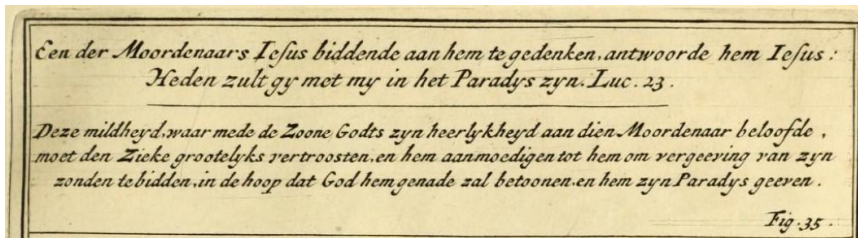 Een der Moordenaars Iesus biddende aan hem te gedenken, antwoorde hem Iesus:
Heden zult gy met my in het Paradys zyn. Luc. 23.
Deze mildheyd, waar mede de Zoone Godts zyn heerlykheyd aan dien Moordenaar beloofde,
moet den Zieke grootelyks vertroosten, en hem aanmoedigen tot hem om vergeeving van zyn
zonden te bidden, in de hoop dat God hem genade zal betoonen, en hem zyn Paradys geeven.
Fig. 35.